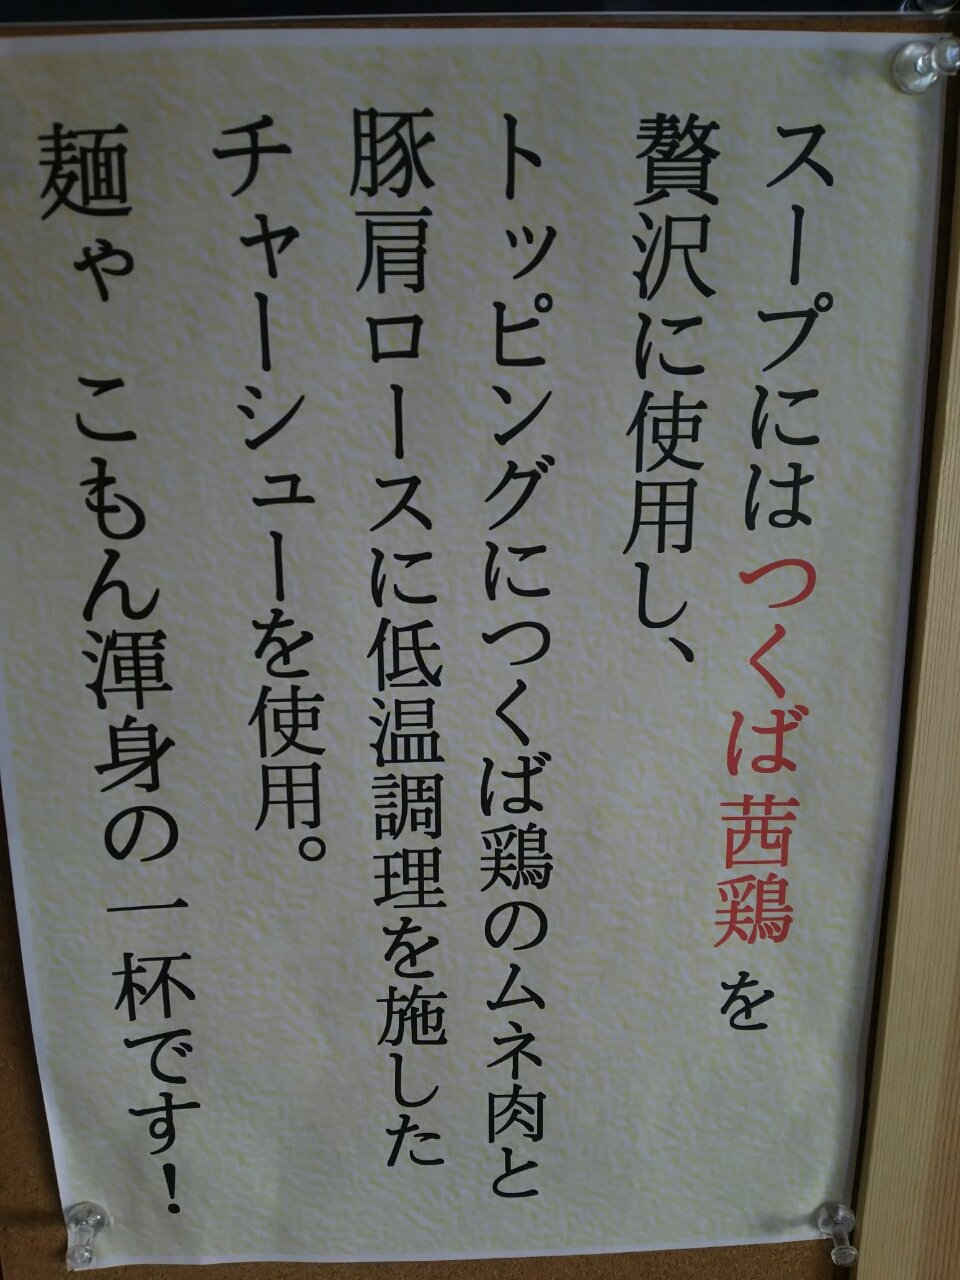 スープにはつくば茜鶏を
贅沢に使用し、
トッピングにつくば鶏のムネ肉と
豚肩ロースに低温調理を施した
チャーシューを使用。
麺や こもん渾身の一杯です!